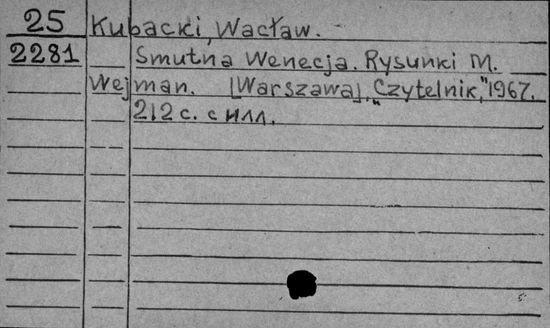 25 Kubacki, Wacław.
2281 Smutna Wenecja. Rysunki M.
Wejman. [Warszawa], "Czytelnik," 1967.
212 с. с илл.
5.